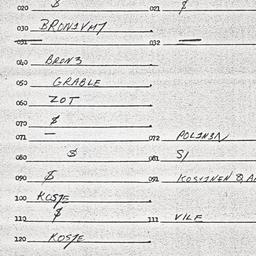 020 $ 021 $
030 BRONSVM1
031 — 032 —
040 BRON3
050 GRABLE
060 ZOT
070 $
071 — 072 POLIN3N
080 $ 081 S1
090 $ 091
100 KOSJE
110 $ 111 VILE
120 KOSJE